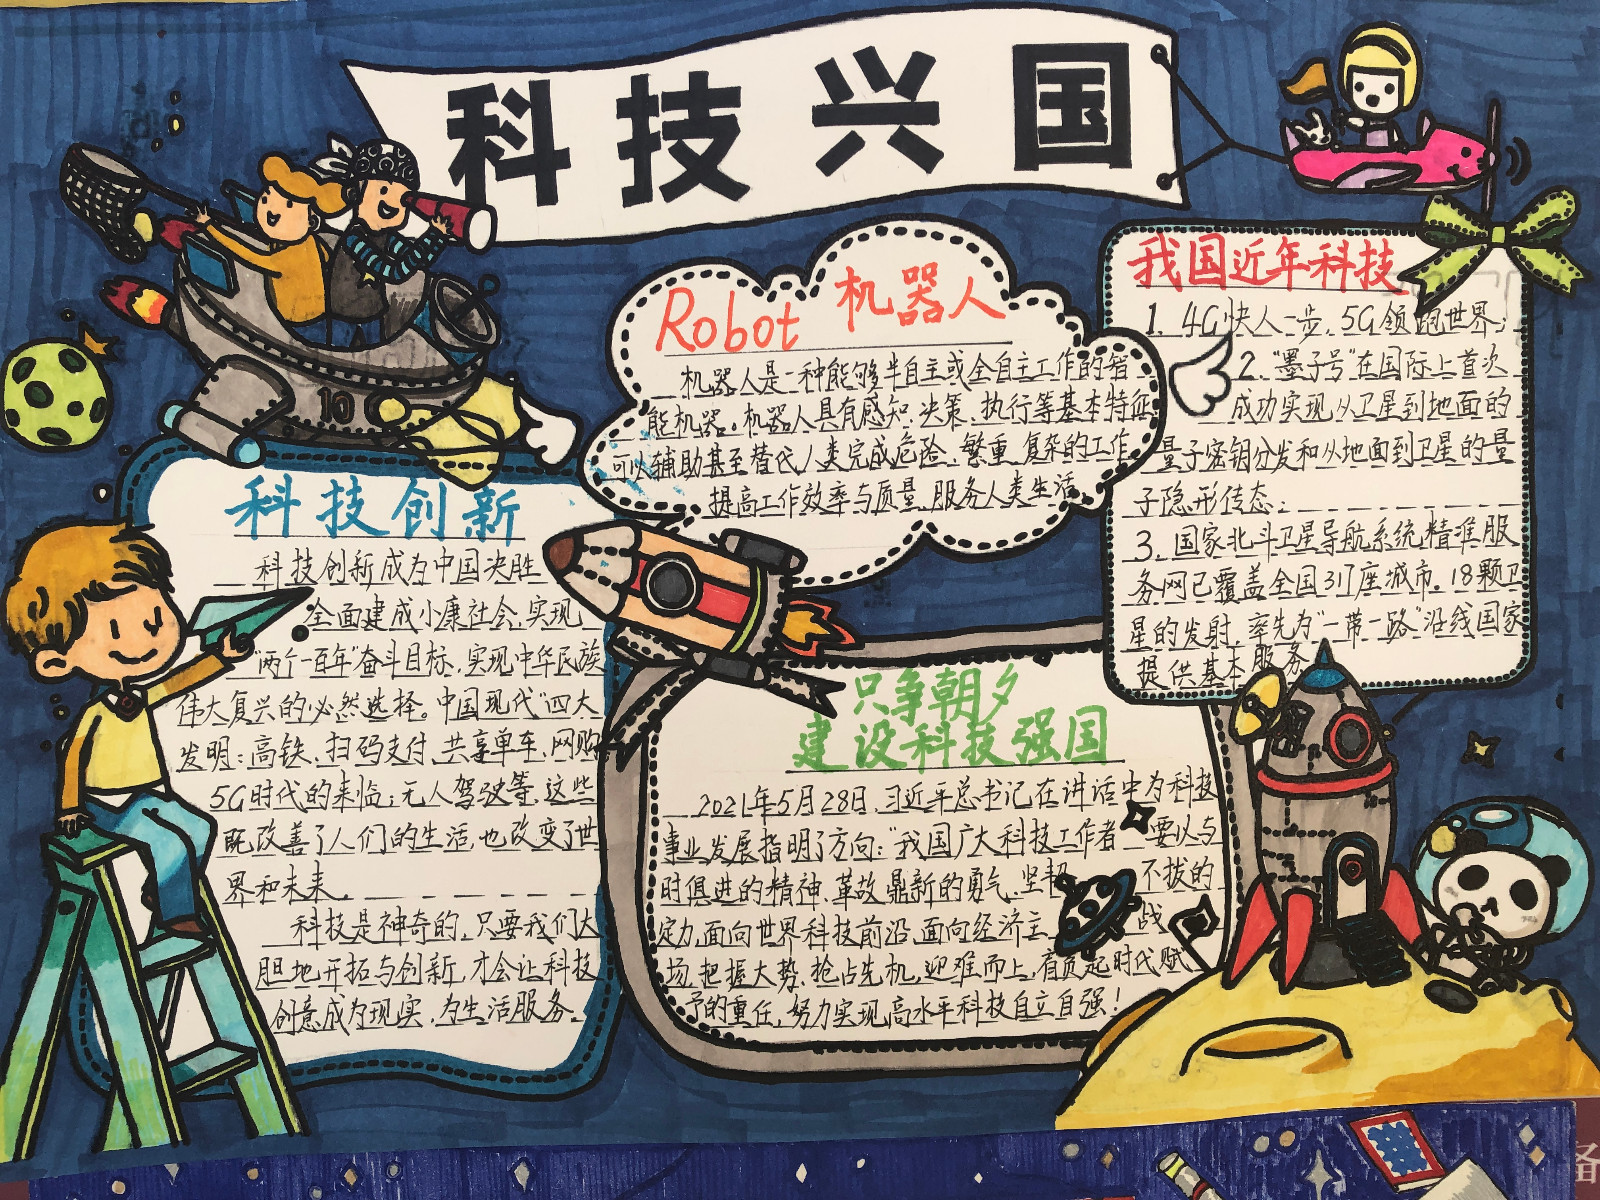 科技兴国
Robot 机器人
机器人是一种能够半自主或全自主工作的智
能机器。机器人具有感知、决策、执行等基本特征
可以辅助甚至替代人类完成危险、繁重、复杂的工作
提高工作效率与质量,服务人类生活
我国近年科技
1. 4G快人一步,5G领跑世界;
2. "墨子号"在国际上首次
成功实现从卫星到地面的
量子密钥分发和从地面到卫星的量
子隐形传态;
3. 国家北斗卫星导航系统,精准服
务网已覆盖全国317座城市。18颗卫
星的发射,率先为"一带一路"沿线国家
提供基本服务
科技创新
科技创新成为中国决胜
全面建成小康社会,实现
"两个一百年"奋斗目标,实现中华民族
伟大复兴的必然选择。中国现代"四大
发明:高铁、扫码支付、共享单车、网购
5G时代的来临;无人驾驶等,这些
既改善了人们的生活,也改变了世
界和未来。
科技是神奇的,只要我们大
胆地开拓与创新,才会让科技
创意成为现实,为生活服务。
只争朝夕
建设科技强国
2021年5月28日,习近平总书记在讲话中为科技
事业发展指明了方向:"我国广大科技工作者 要以与
时俱进的精神、革故鼎新的勇气、坚韧 不拔的
定力,面向世界科技前沿,面向经济主 战
场,把握大势、抢占先机,迎难而上,肩负起时代赋
予的重任,努力实现高水平科技自立自强!
10